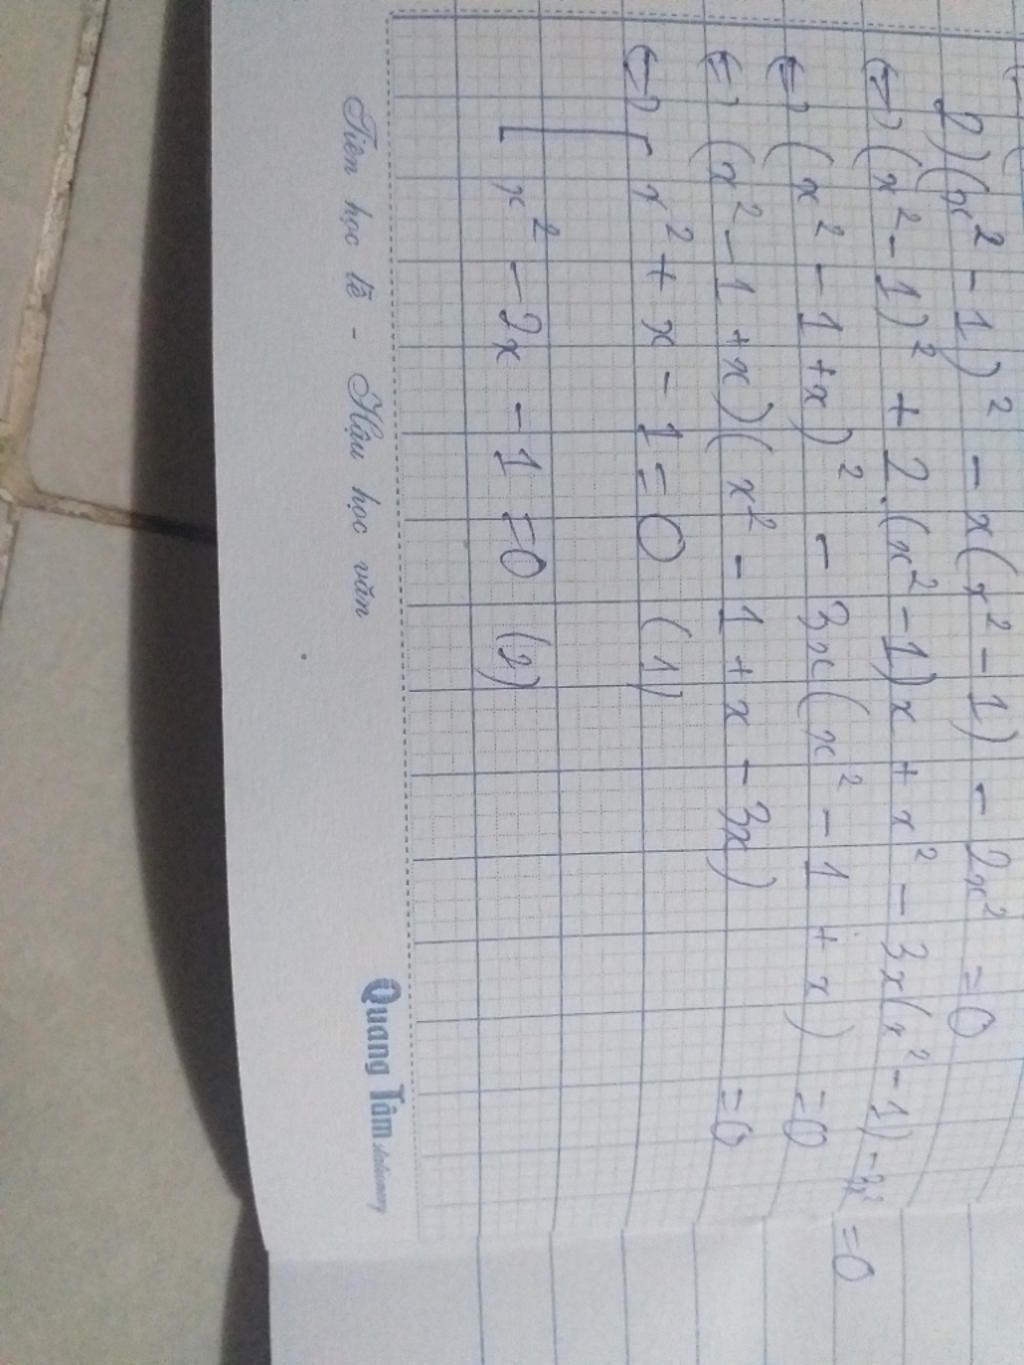 2) (x² - 1)² - x(x² - 1) - 2x² = 0
(=) (x² - 1)² + 2.(x² - 1)x + x² - 3x(x² - 1) - 3x² = 0
(=) (x² - 1 + x)² - 3x(x² - 1 + x) = 0
(=) (x² - 1 + x)(x² - 1 + x - 3x) = 0
(=) [ x² + x - 1 = 0 (1)
x² - 2x - 1 = 0 (2)
Tiên học lễ - Hậu học văn
Quang Tâm stationery